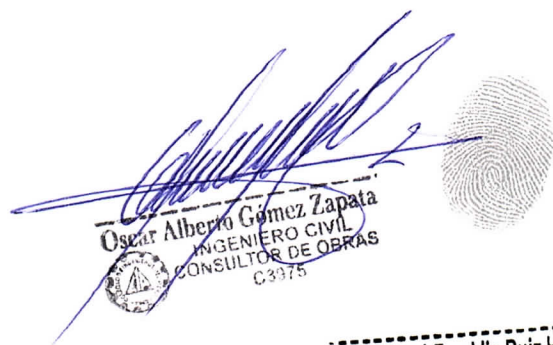 Oscar Alberto Gómez Zapata
INGENIERO CIVIL
CONSULTOR DE OBRAS
C3975